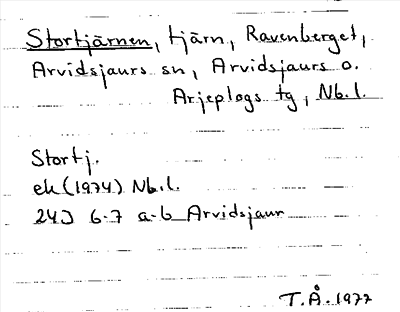 Stortjärnen, tjärn, Ravenberget,
Arvidsjaurs sn, Arvidsjaurs o.
Arjeplogs tg, Nb.l.
Stortj.
ek (1974) Nb.l.
24J 6-7 a-b Arvidsjaur
T.Å. 1977